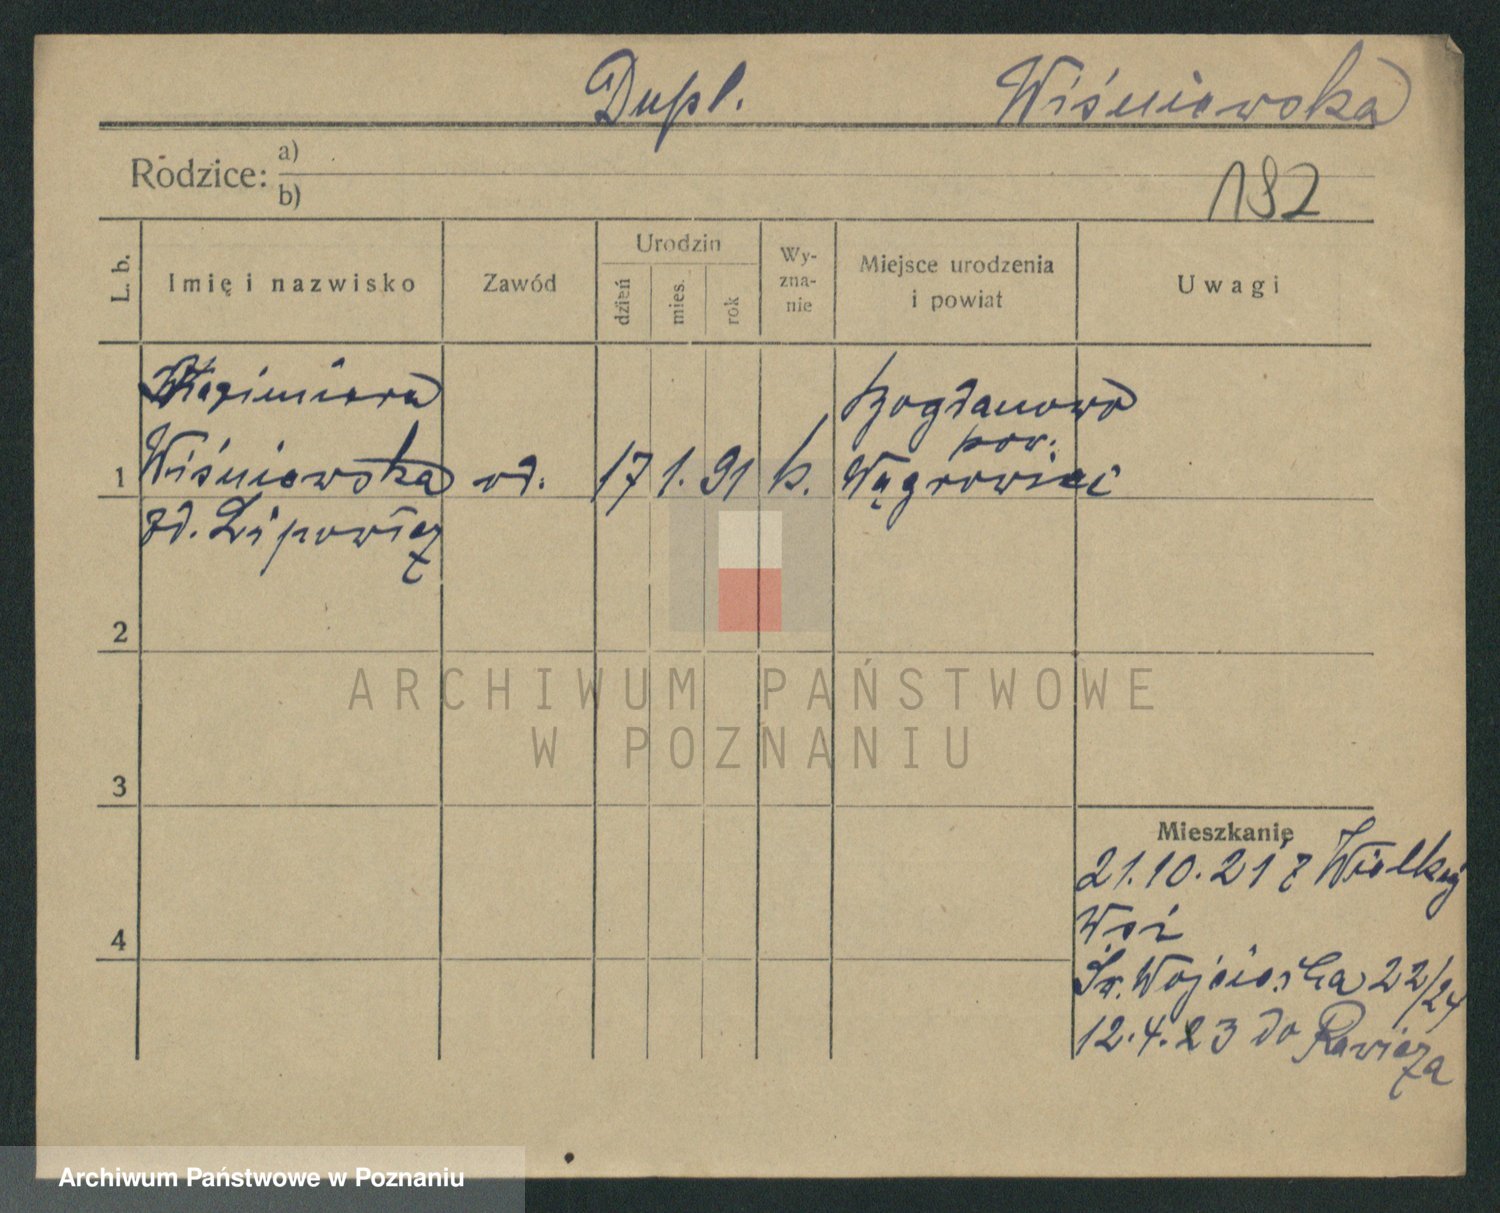 Dupl. Wiśniewska
Rodzice: a)
b)
192
L. b.
Imię i nazwisko
Zawód
Urodzin
dzień
mies.
rok
Wy-
zna-
nie
Miejsce urodzenia
i powiat
Uwagi
Kazimiera
Wiśniewska
zd. Lipowicz
1
wd.
17 1. 91
k.
Bogdanowo
pow.
Wągrowiec
2
3
4
Mieszkanie
21.10.21 z Wielkiej
Wsi
Św. Wojciecha 22/24
12.4.23 do Rawicza
ARCHIWUM PAŃSTWOWE
W POZNANIU
Archiwum Państwowe w Poznaniu